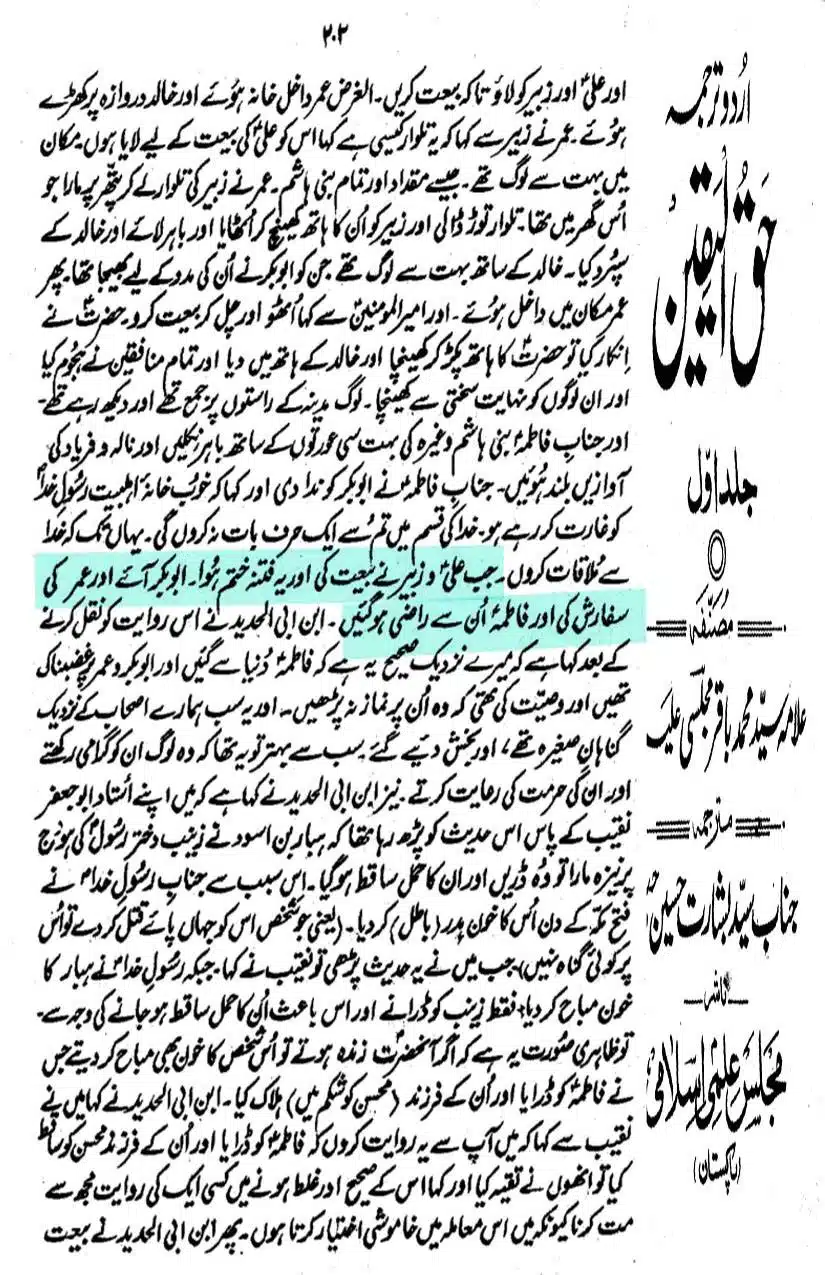 ۲۰۲
اور علیؑ اور زبیر کو لاؤ تاکہ بیعت کریں۔ الغرض عمر داخل خانہ ہُوئے اور خالد دروازہ پر کھڑے
ہُوئے۔ عمر نے زبیر سے کہا کہ یہ تلوار کیسی ہے کہا اس کو علیؑ کی بیعت کے لیے لایا ہوں۔ مکان
میں بہت سے لوگ تھے۔ جیسے مقداد اور تمام بنی ہاشم۔ عمر نے زبیر کی تلوار لے کر پتھر پر مارا جو
اُس گھر میں تھا۔ تلوار توڑ ڈالی اور زبیر کو اُن کا ہاتھ کھینچ کر اُٹھایا اور باہر لائے اور خالد کے
سپرد کیا۔ خالد کے ساتھ بہت سے لوگ تھے جن کو ابوبکر نے اُن کی مدد کے لیے بھیجا تھا۔ پھر
عمر مکان میں داخل ہُوئے۔ اور امیر المومنینؑ سے کہا اُٹھو اور چل کر بیعت کرو۔ حضرتؑ نے
اِنکار کیا تو حضرتؑ کا ہاتھ پکڑ کر کھینچا اور خالد کے ہاتھ میں دیا اور تمام منافقین نے ہجوم کیا
اور ان لوگوں کو نہایت سختی سے کھینچا۔ لوگ مدینہ کے راستوں پر جمع تھے اور دیکھ رہے تھے۔
اور جناب فاطمہؑ بنی ہاشم وغیرہ کی بہت سی عورتوں کے ساتھ باہر نکلیں اور نالہ و فریاد کی
آوازیں بلند ہُوئیں۔ جناب فاطمہؑ نے ابوبکر کو ندا دی اور کہا کہ خوب خانۂ اہلبیت رسُولِ خداؐ
کو غارت کر رہے ہو۔ خدا کی قسم میں تم سے ایک حرف بات نہ کروں گی۔ یہاں تک کہ خدا
سے مُلاقات کروں۔ جب علیؑ و زبیر نے بیعت کی اور یہ فتنہ ختم ہُوا۔ ابوبکر آئے اور عمر کی
سفارش کی اور فاطمہؑ اُن سے راضی ہو گئیں۔ ابن ابی الحدید نے اس روایت کو نقل کرنے
کے بعد کہا ہے کہ میرے نزدیک صحیح یہ ہے کہ فاطمہؑ دُنیا سے گئیں اور ابوبکر و عمر پر غضبناک
تھیں اور وصیّت کی تھی کہ وہ اُن پر نماز نہ پڑھیں۔ اور یہ سب ہمارے اصحاب کے نزدیک
گناہانِ صغیرہ تھے، اور بخش دیئے گئے۔ سب سے بہتر تو یہ تھا کہ وہ لوگ ان کو گرامی رکھتے
اور ان کی حرمت کی رعایت کرتے۔ نیز ابن ابی الحدید نے کہا ہے کہ میں اپنے اُستاد ابوجعفر
نقیب کے پاس اس حدیث کو پڑھ رہا تھا کہ ہبار بن اسود نے زینب دختر رسُولؐ کی ہودج
پر نیزہ مارا تو وُہ ڈریں اور ان کا حمل ساقط ہو گیا۔ اس سبب سے جناب رسُولِ خداؐ نے
فتح مکّہ کے دن اُس کا خون ہدر (باطل) کر دیا۔ (یعنی جو شخص اس کو جہاں پائے قتل کر دے تو اُس
پر کوئی گناہ نہیں) جب میں نے یہ حدیث پڑھی تو نقیب نے کہا۔ جبکہ رسُولِ خداؐ نے ہبار کا
خون مباح کر دیا، فقط زینب کو ڈرانے اور اس باعث اُن کا حمل ساقط ہو جانے کی وجہ سے۔
تو ظاہری صُورت یہ ہے کہ اگر آنحضرتؐ زندہ ہوتے تو اُس شخص کا خون بھی مباح کر دیتے جس
نے فاطمہؑ کو ڈرایا اور اُن کے فرزند (محسن کو شکم میں) ہلاک کیا۔ ابن ابی الحدید نے کہا میں نے
نقیب سے کہا کہ میں آپ سے یہ روایت کروں کہ فاطمہؑ کو ڈرایا اور اُن کے فرزند محسن کو ساقط
کیا تو انھوں نے تقیہ کیا اور کہا اس کے صحیح اور غلط ہونے میں کسی ایک کی روایت مجھ سے
مت کرنا کیونکہ میں اس معاملہ میں خاموشی اختیار کرتا ہوں۔ پھر ابن ابی الحدید نے بیعت
اُردو ترجمہ
حَقُّ الیَقِین
جلد اوّل
مُصنّفہ
علامہ سیّد محمد باقر مجلسی علیہ
مترجمہ
جناب سیّد بشارت حسین
ناشر
مجلسِ عِلمیِ اِسلامی
(پاکستان)